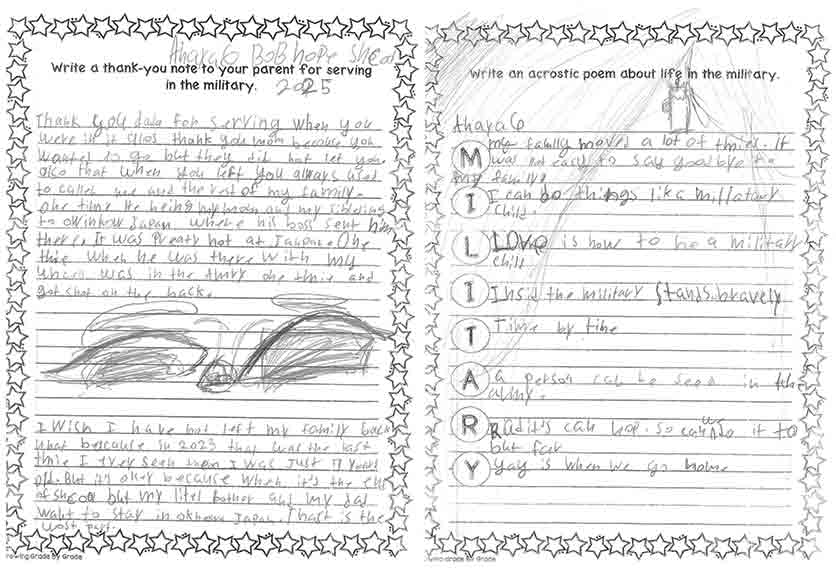 Ahara G BOB hope Shcool
Write a thank-you note to your parent for serving
in the military. 2025
Thank you dada for serving when you
were in it allos thank you mom because you
wanted to go but they did hot let you
alco that when you left you always used
to called me and the rest of my family.
one time He being my mom and my sibleings
to okinhow Japan where his boss sent him
there. It was Preaty hot at Japan. One
thie when he was there with my
was in the one thie and
got shot on the back.
I wish I have not left my family back
what because in 2023 that was the last
thie I ever seen them I was Just 7 years
old. But it's okey because when it's the end
of shcool but my litel bother and my dad
want to stay in okhowa Japan. Thast is the
wost part.
rowing Grade by Grade
Write an acrostic poem about life in the military.
Ahara G
M my family moved a lot of thies. It
was not easy to say goodbye to
my family!
I I can do things lika millatary
child.
L LOVE is how to be a military
chill
I Insid the military Stands bravely
T Time by tihe
A a person can be seen in the
army.
R Radit's can hop. so can we do it to
but far
Y Yay is when we go home
Grade by Grade